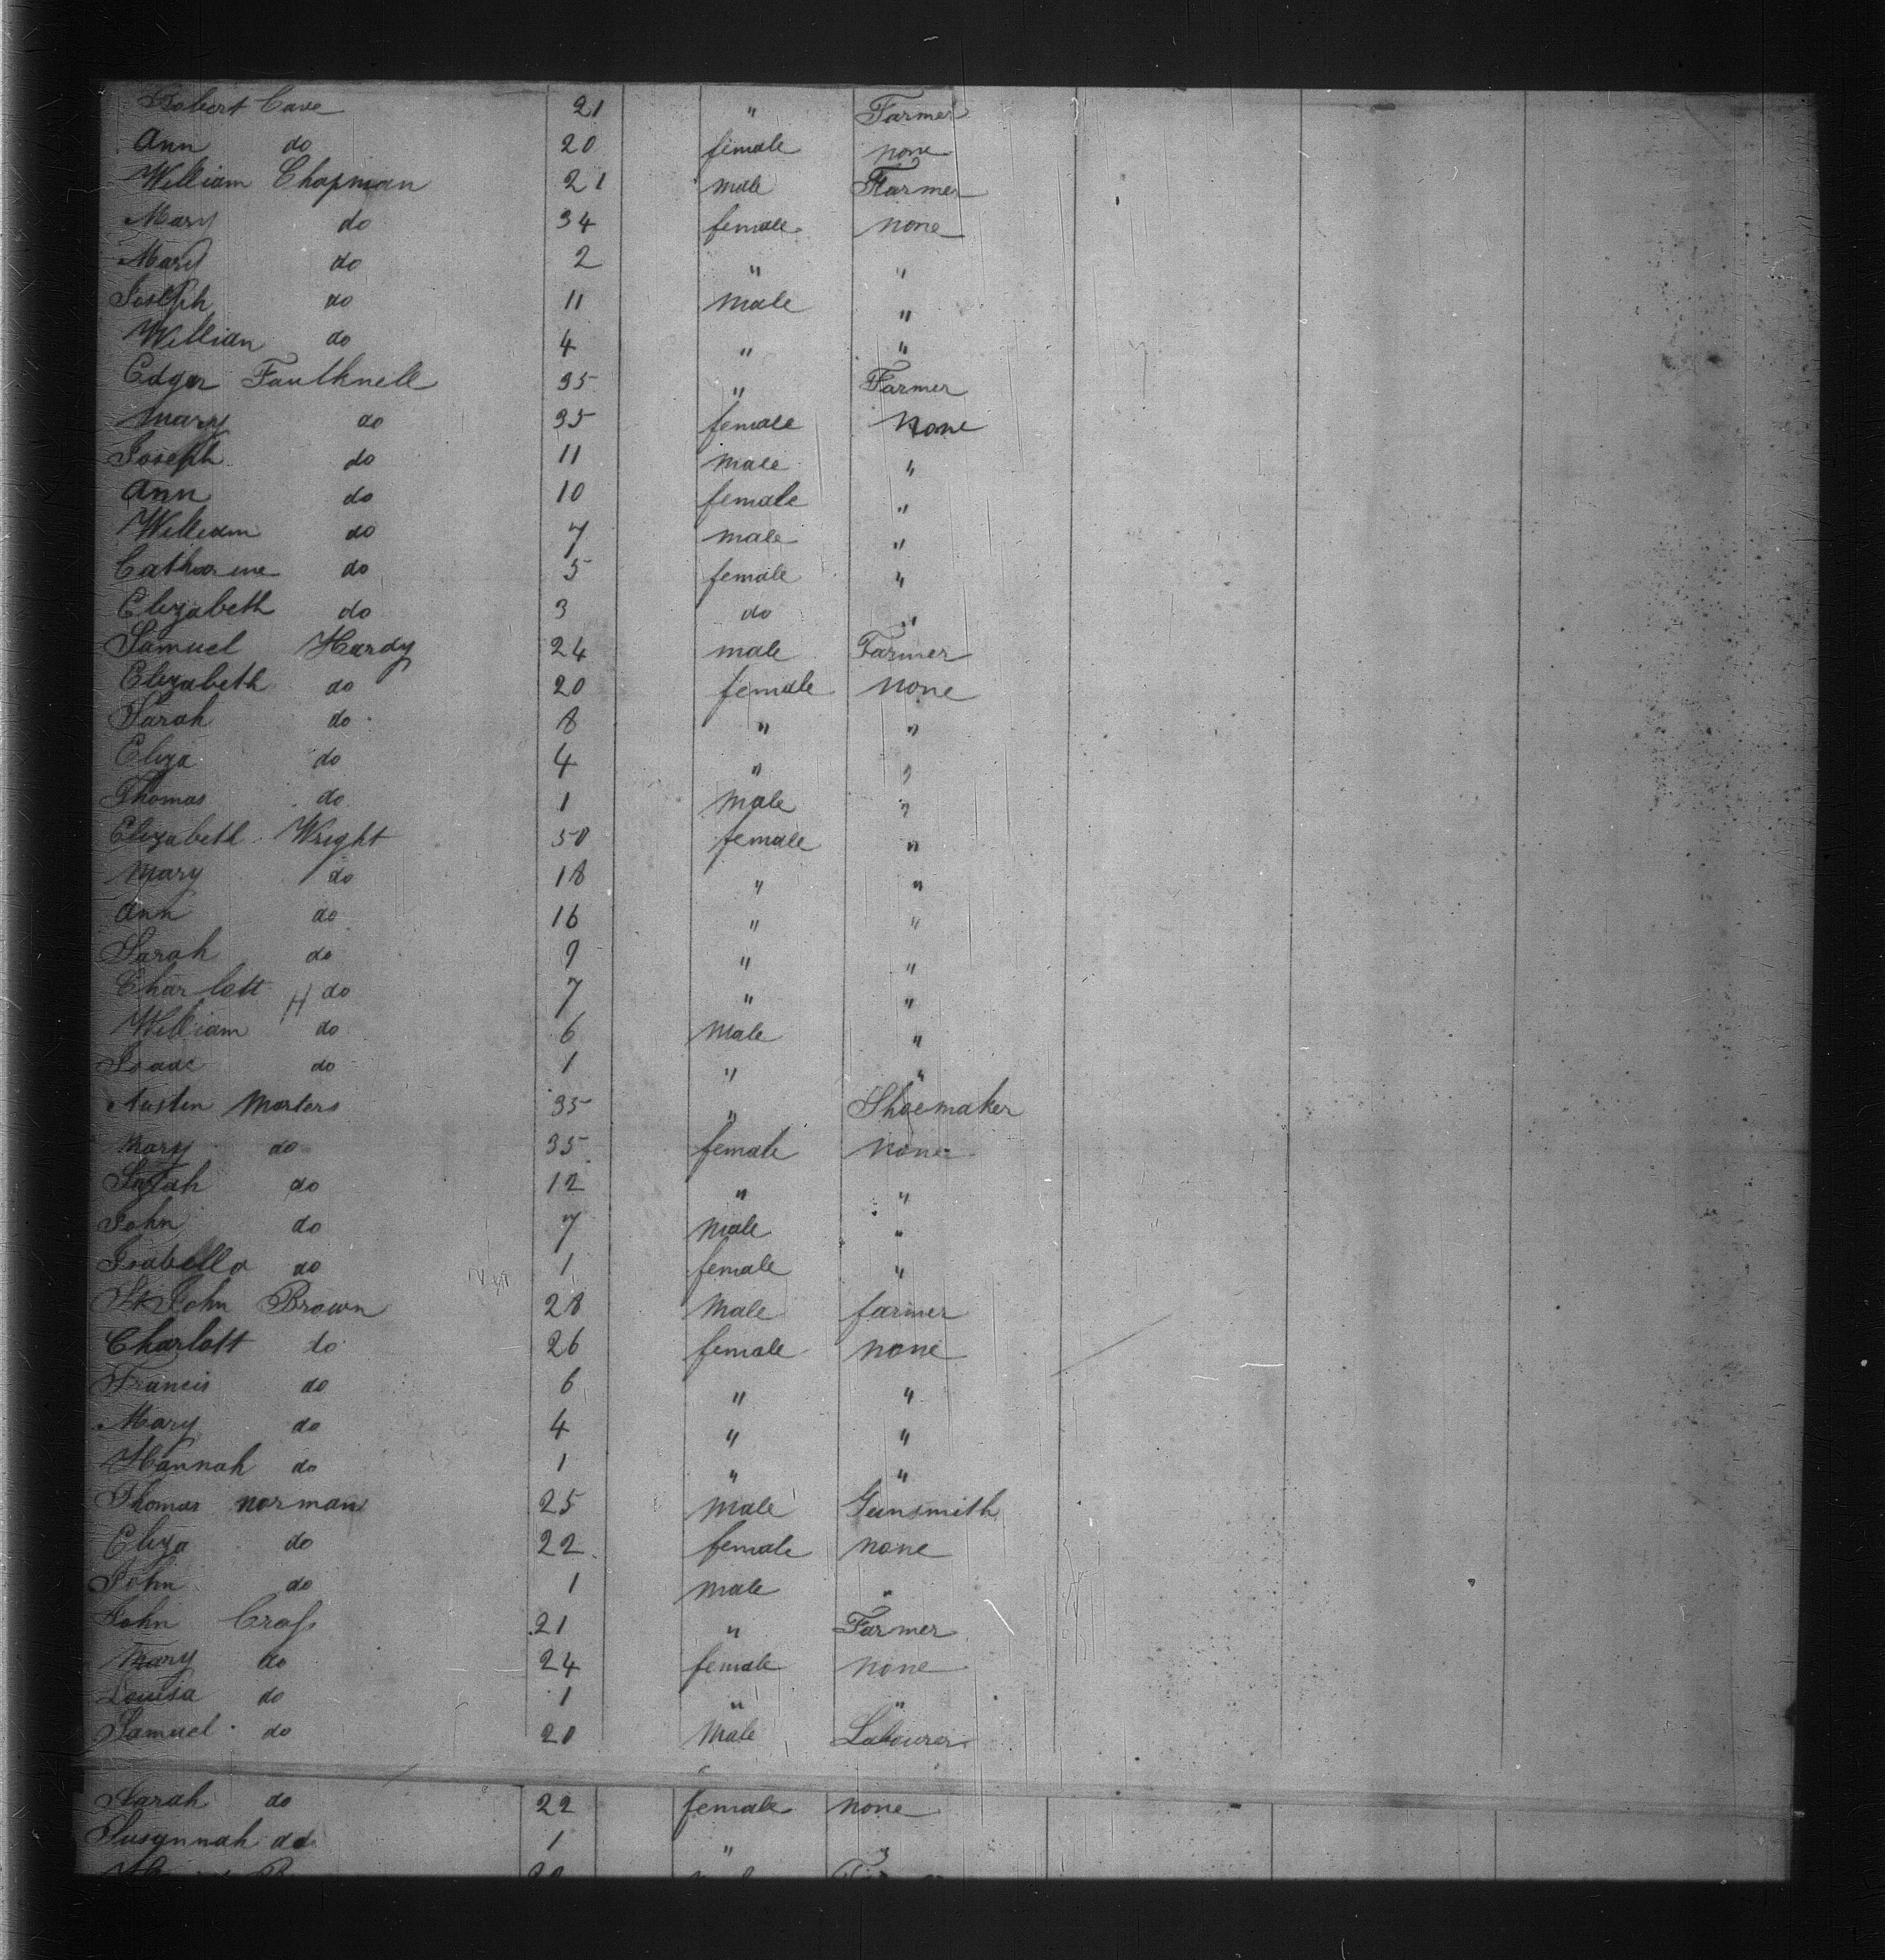 Robert Cave 21 " Farmer
Ann do 20 female none
William Chapman 21 male Farmer
Mary do 34 female none
Mary do 2 " "
Joseph do 11 male "
William do 4 " "
Edgar Faulknell 35 " Farmer
Mary do 35 female None
Joseph do 11 male "
Ann do 10 female "
William do 7 male "
Catharine do 5 female "
Elizabeth do 3 do "
Samuel Hardy 24 male Farmer
Elizabeth do 20 female none
Sarah do 8 " "
Eliza do 4 " "
Thomas do 1 Male "
Elizabeth Wright 50 female "
Mary do 18 " "
Ann do 16 " "
Sarah do 9 " "
Charlott H do 7 " "
William do 6 Male "
Isaac do 1 " "
Austin Marters 35 " Shoemaker
Mary do 35 female none
Sarah do 12 " "
John do 7 Male "
Isabella do 1 female "
St John Brown 28 Male farmer
Charlott do 26 female none
Francis do 6 " "
Mary do 4 " "
Hannah do 1 " "
Thomas Norman 25 Male Gunsmith
Eliza do 22 female none
John do 1 male "
John Cross 21 " Farmer
Mary do 24 female none
Louisa do 1 " "
Samuel do 20 Male Labourer
Sarah do 22 female none
Susannah do 1 " "